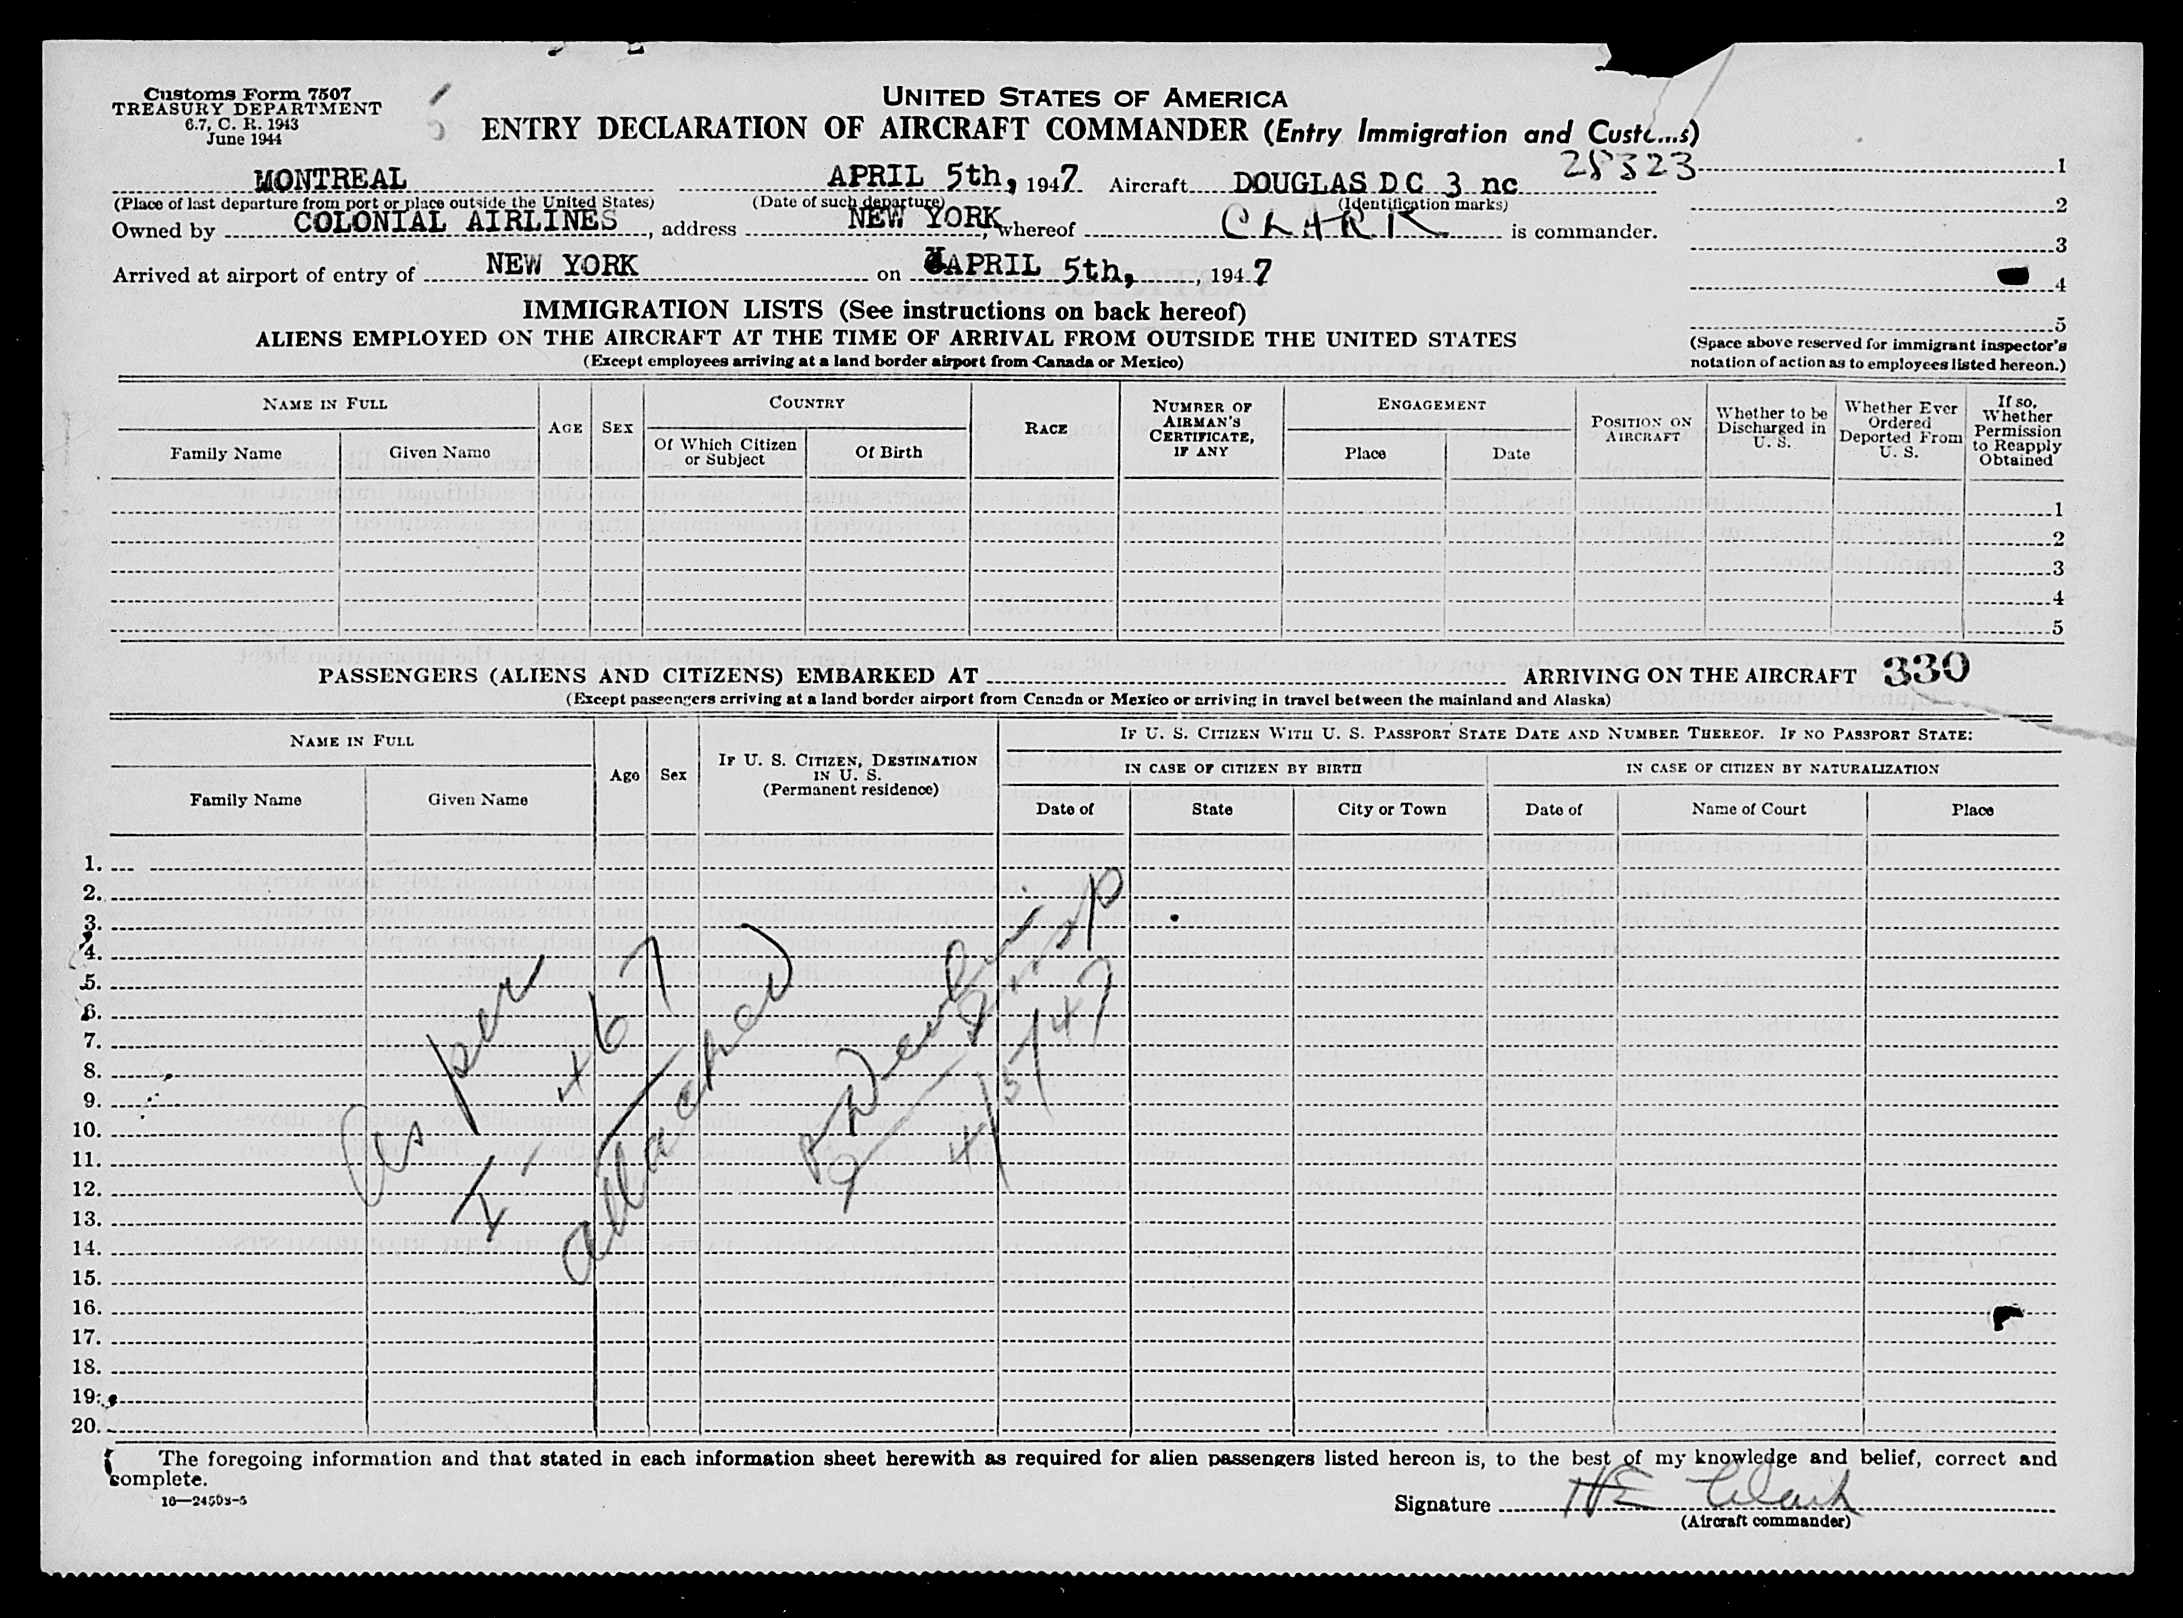 Customs Form 7507
TREASURY DEPARTMENT
6.7, C. R. 1943
June 1944
UNITED STATES OF AMERICA
ENTRY DECLARATION OF AIRCRAFT COMMANDER (Entry Immigration and Customs)
MONTREAL APRIL 5th, 1947 Aircraft DOUGLAS DC 3 nc 28323 1
(Place of last departure from port or place outside the United States) (Date of such departure) (Identification marks) 2
Owned by COLONIAL AIRLINES, address NEW YORK, whereof CLARK is commander. 3
Arrived at airport of entry of NEW YORK on APRIL 5th, 1947 4
IMMIGRATION LISTS (See instructions on back hereof) 5
ALIENS EMPLOYED ON THE AIRCRAFT AT THE TIME OF ARRIVAL FROM OUTSIDE THE UNITED STATES
(Except employees arriving at a land border airport from Canada or Mexico)
(Space above reserved for immigrant inspector's
notation of action as to employees listed hereon.)
NAME IN FULL
Family Name
Given Name
AGE
SEX
COUNTRY
Of Which Citizen
or Subject
Of Birth
RACE
NUMBER OF
AIRMAN'S
CERTIFICATE,
IF ANY
ENGAGEMENT
Place
Date
POSITION ON
AIRCRAFT
Whether to be
Discharged in
U. S.
Whether Ever
Ordered
Deported From
U. S.
If so,
Whether
Permission
to Reapply
Obtained
1
2
3
4
5
PASSENGERS (ALIENS AND CITIZENS) EMBARKED AT ARRIVING ON THE AIRCRAFT 330
(Except passengers arriving at a land border airport from Canada or Mexico or arriving in travel between the mainland and Alaska)
NAME IN FULL
Family Name
Given Name
Age
Sex
IF U. S. CITIZEN, DESTINATION
IN U. S.
(Permanent residence)
IF U. S. CITIZEN WITH U. S. PASSPORT STATE DATE AND NUMBER THEREOF. IF NO PASSPORT STATE:
IN CASE OF CITIZEN BY BIRTH
IN CASE OF CITIZEN BY NATURALIZATION
Date of
State
City or Town
Date of
Name of Court
Place
1.
2.
3.
4.
5.
6.
7.
8.
9.
10.
11.
12.
13.
14.
15.
16.
17.
18.
19.
20.
As per
I-467
attached
4/5/47
The foregoing information and that stated in each information sheet herewith as required for alien passengers listed hereon is, to the best of my knowledge and belief, correct and
complete.
16—24508-5
Signature HE Clark
(Aircraft commander)